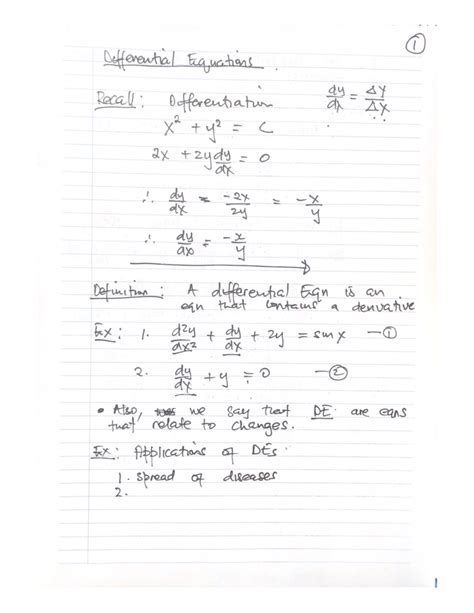 ①
Differential Equations.
Recall: Differentiation dy/dx = Δy/Δx
x² + y² = C
2x + 2y dy/dx = 0
∴ dy/dx = -2x/2y = -x/y
∴ dy/dx = -x/y
Definition: A differential Eqn is an
eqn that contains a derivative
Ex: 1. d²y/dx² + dy/dx + 2y = sin x —①
2. dy/dx + y = 0 —②
• Also, we say that DE are eqns
that relate to changes.
Ex: Applications of DEs
1. Spread of diseases
2.